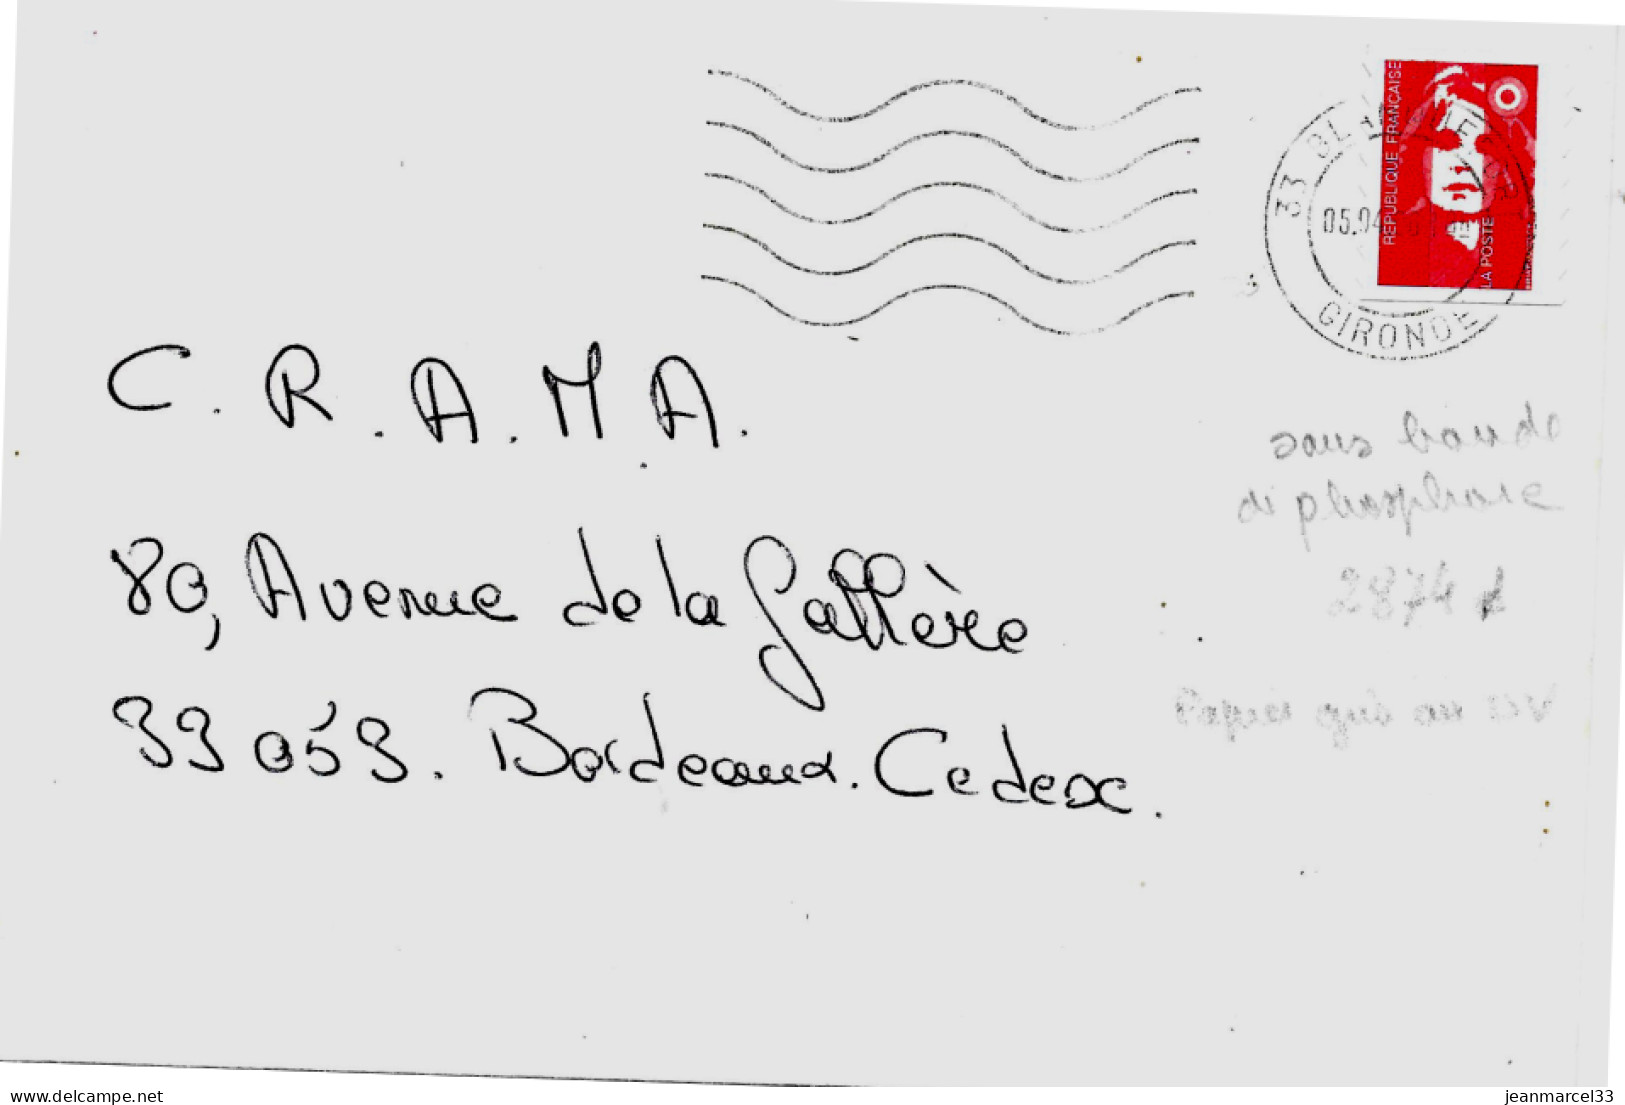 REPUBLIQUE FRANCAISE
LA POSTE
33
05.04
GIRONDE
C. R. A. M A.
80, Avenue de la Jallère
33053. Bordeaux. Cedex.
sans bande
di phosphore
2874
Papier gris au UV
www.delcampe.net
jeanmarcel33